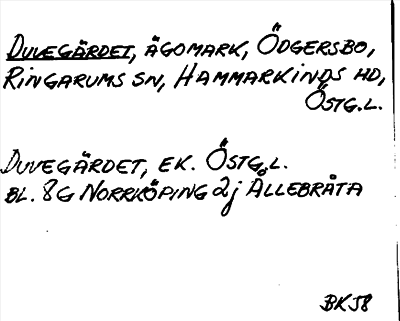 DUVEGÄRDET, ÄGOMARK, ÖDGERSBO,
RINGARUMS SN, HAMMARKINDS HD,
ÖSTG.L.
DUVEGÄRDET, EK. ÖSTG.L.
BL. 8G NORRKÖPING 2j ÅLLEBRÅTA
BK58